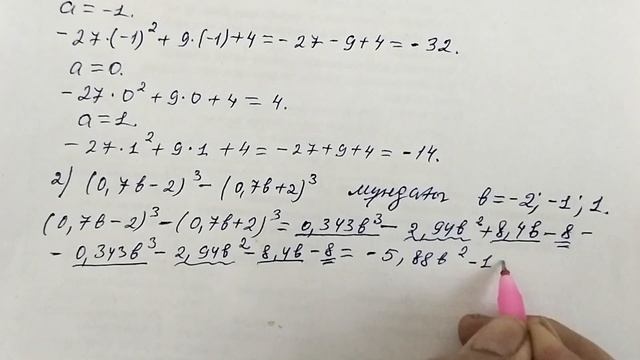 a = -1.
-27·(-1)² + 9·(-1) + 4 = -27 - 9 + 4 = -32.
a = 0.
-27·0² + 9·0 + 4 = 4.
a = 1.
-27·1² + 9·1 + 4 = -27 + 9 + 4 = -14.
2) (0,7в-2)³ - (0,7в+2)³ мундағы в = -2; -1; 1.
(0,7в-2)³ - (0,7в+2)³ = 0,343в³ - 2,94в² + 8,4в - 8 -
- 0,343в³ - 2,94в² - 8,4в - 8 = -5,88в² - 1